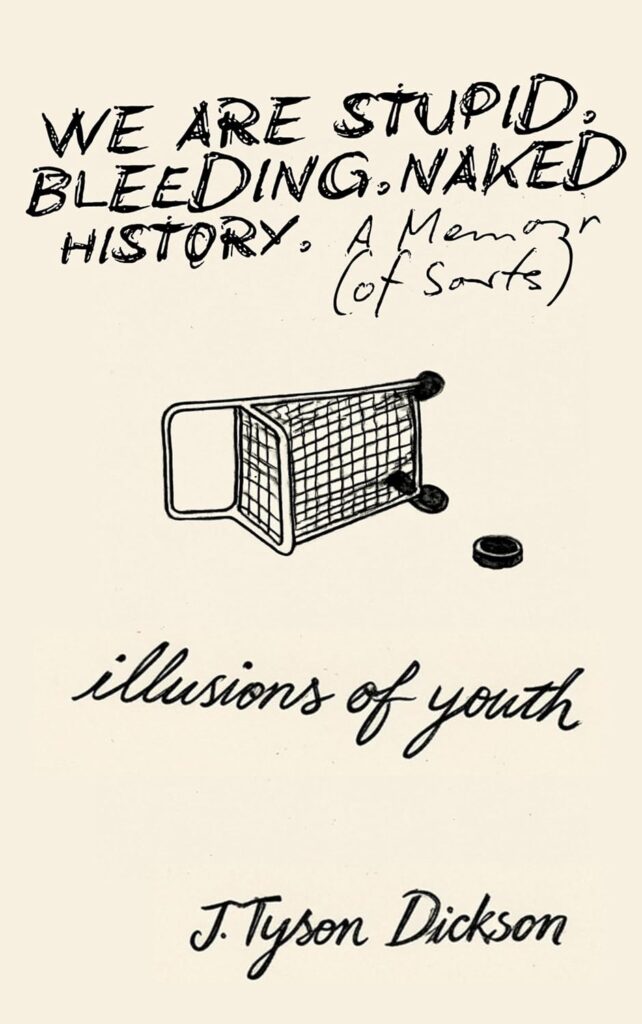 WE ARE STUPID.
BLEEDING. NAKED
HISTORY. A Memoir
(of Sorts)
illusions of youth
J. Tyson Dickson